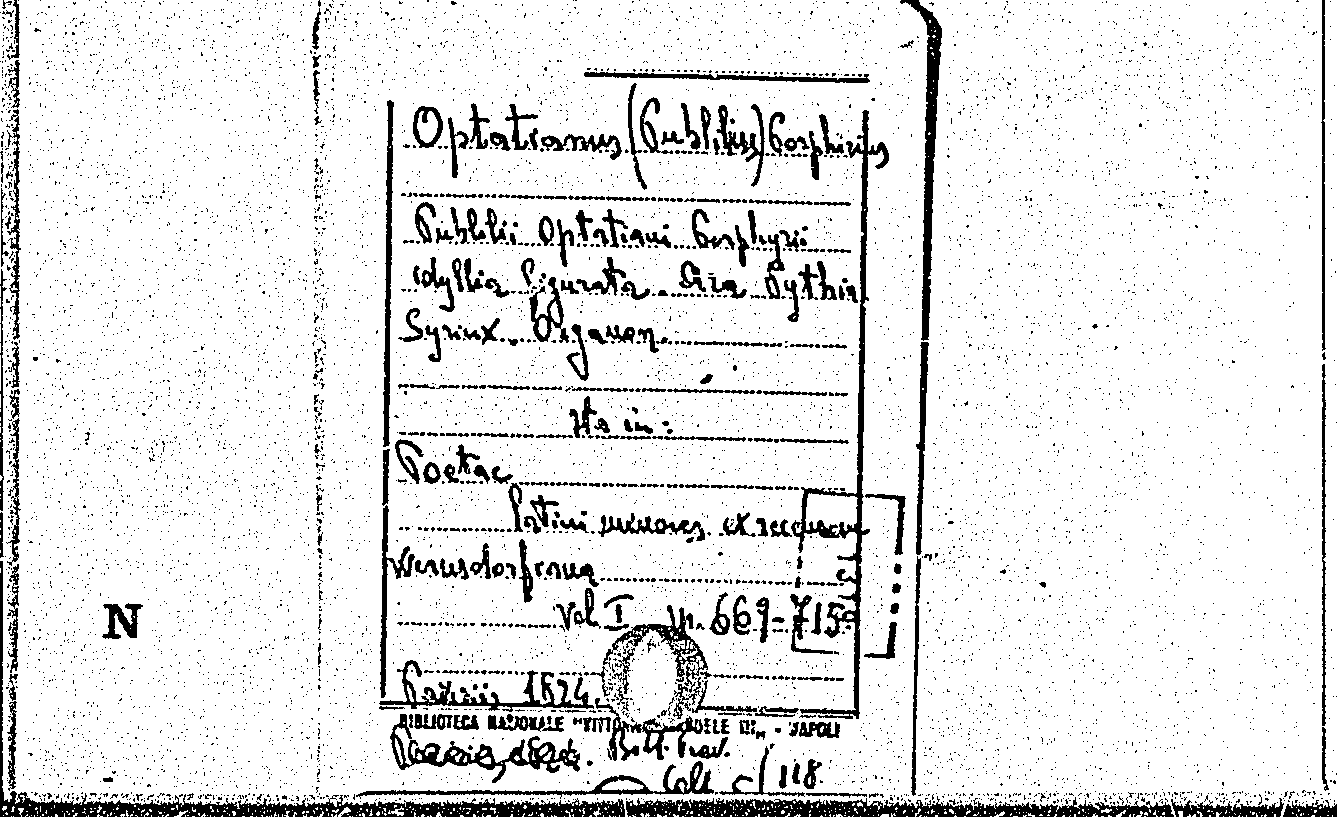 Optatianus (Publilius) Porphirius
Publilii Optatiani Porphyrii
idyllia figurata. Ara Pythia
Syrinx. Organon.
Sta in:
Poetae
latini minores ex recensione
Wernsdorfiana
Vol I pp. 669-715
N
Parisiis, 1824.
BIBLIOTECA NAZIONALE "VITTORIO EMANUELE III" - NAPOLI
Coll. 118